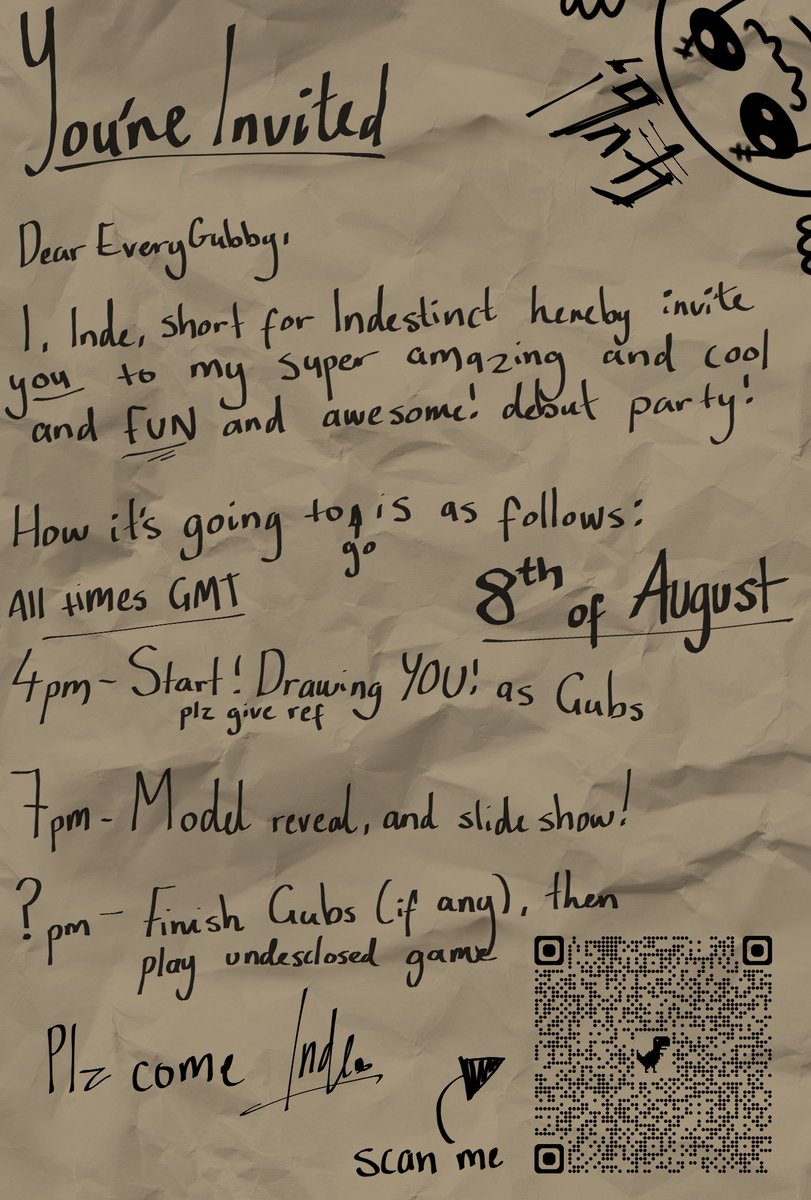 You're Invited
Dear EveryGubby,
I, Inde, short for Indestinct hereby invite
you to my super amazing and cool
and FUN and awesome! debut party!
How it's going to go is as follows:
All times GMT
8th of August
4pm - Start! Drawing YOU! as Gubs
plz give ref
7pm - Model reveal, and slide show!
?pm - Finish Gubs (if any), then
play undesclosed game
Plz come Inde
scan me